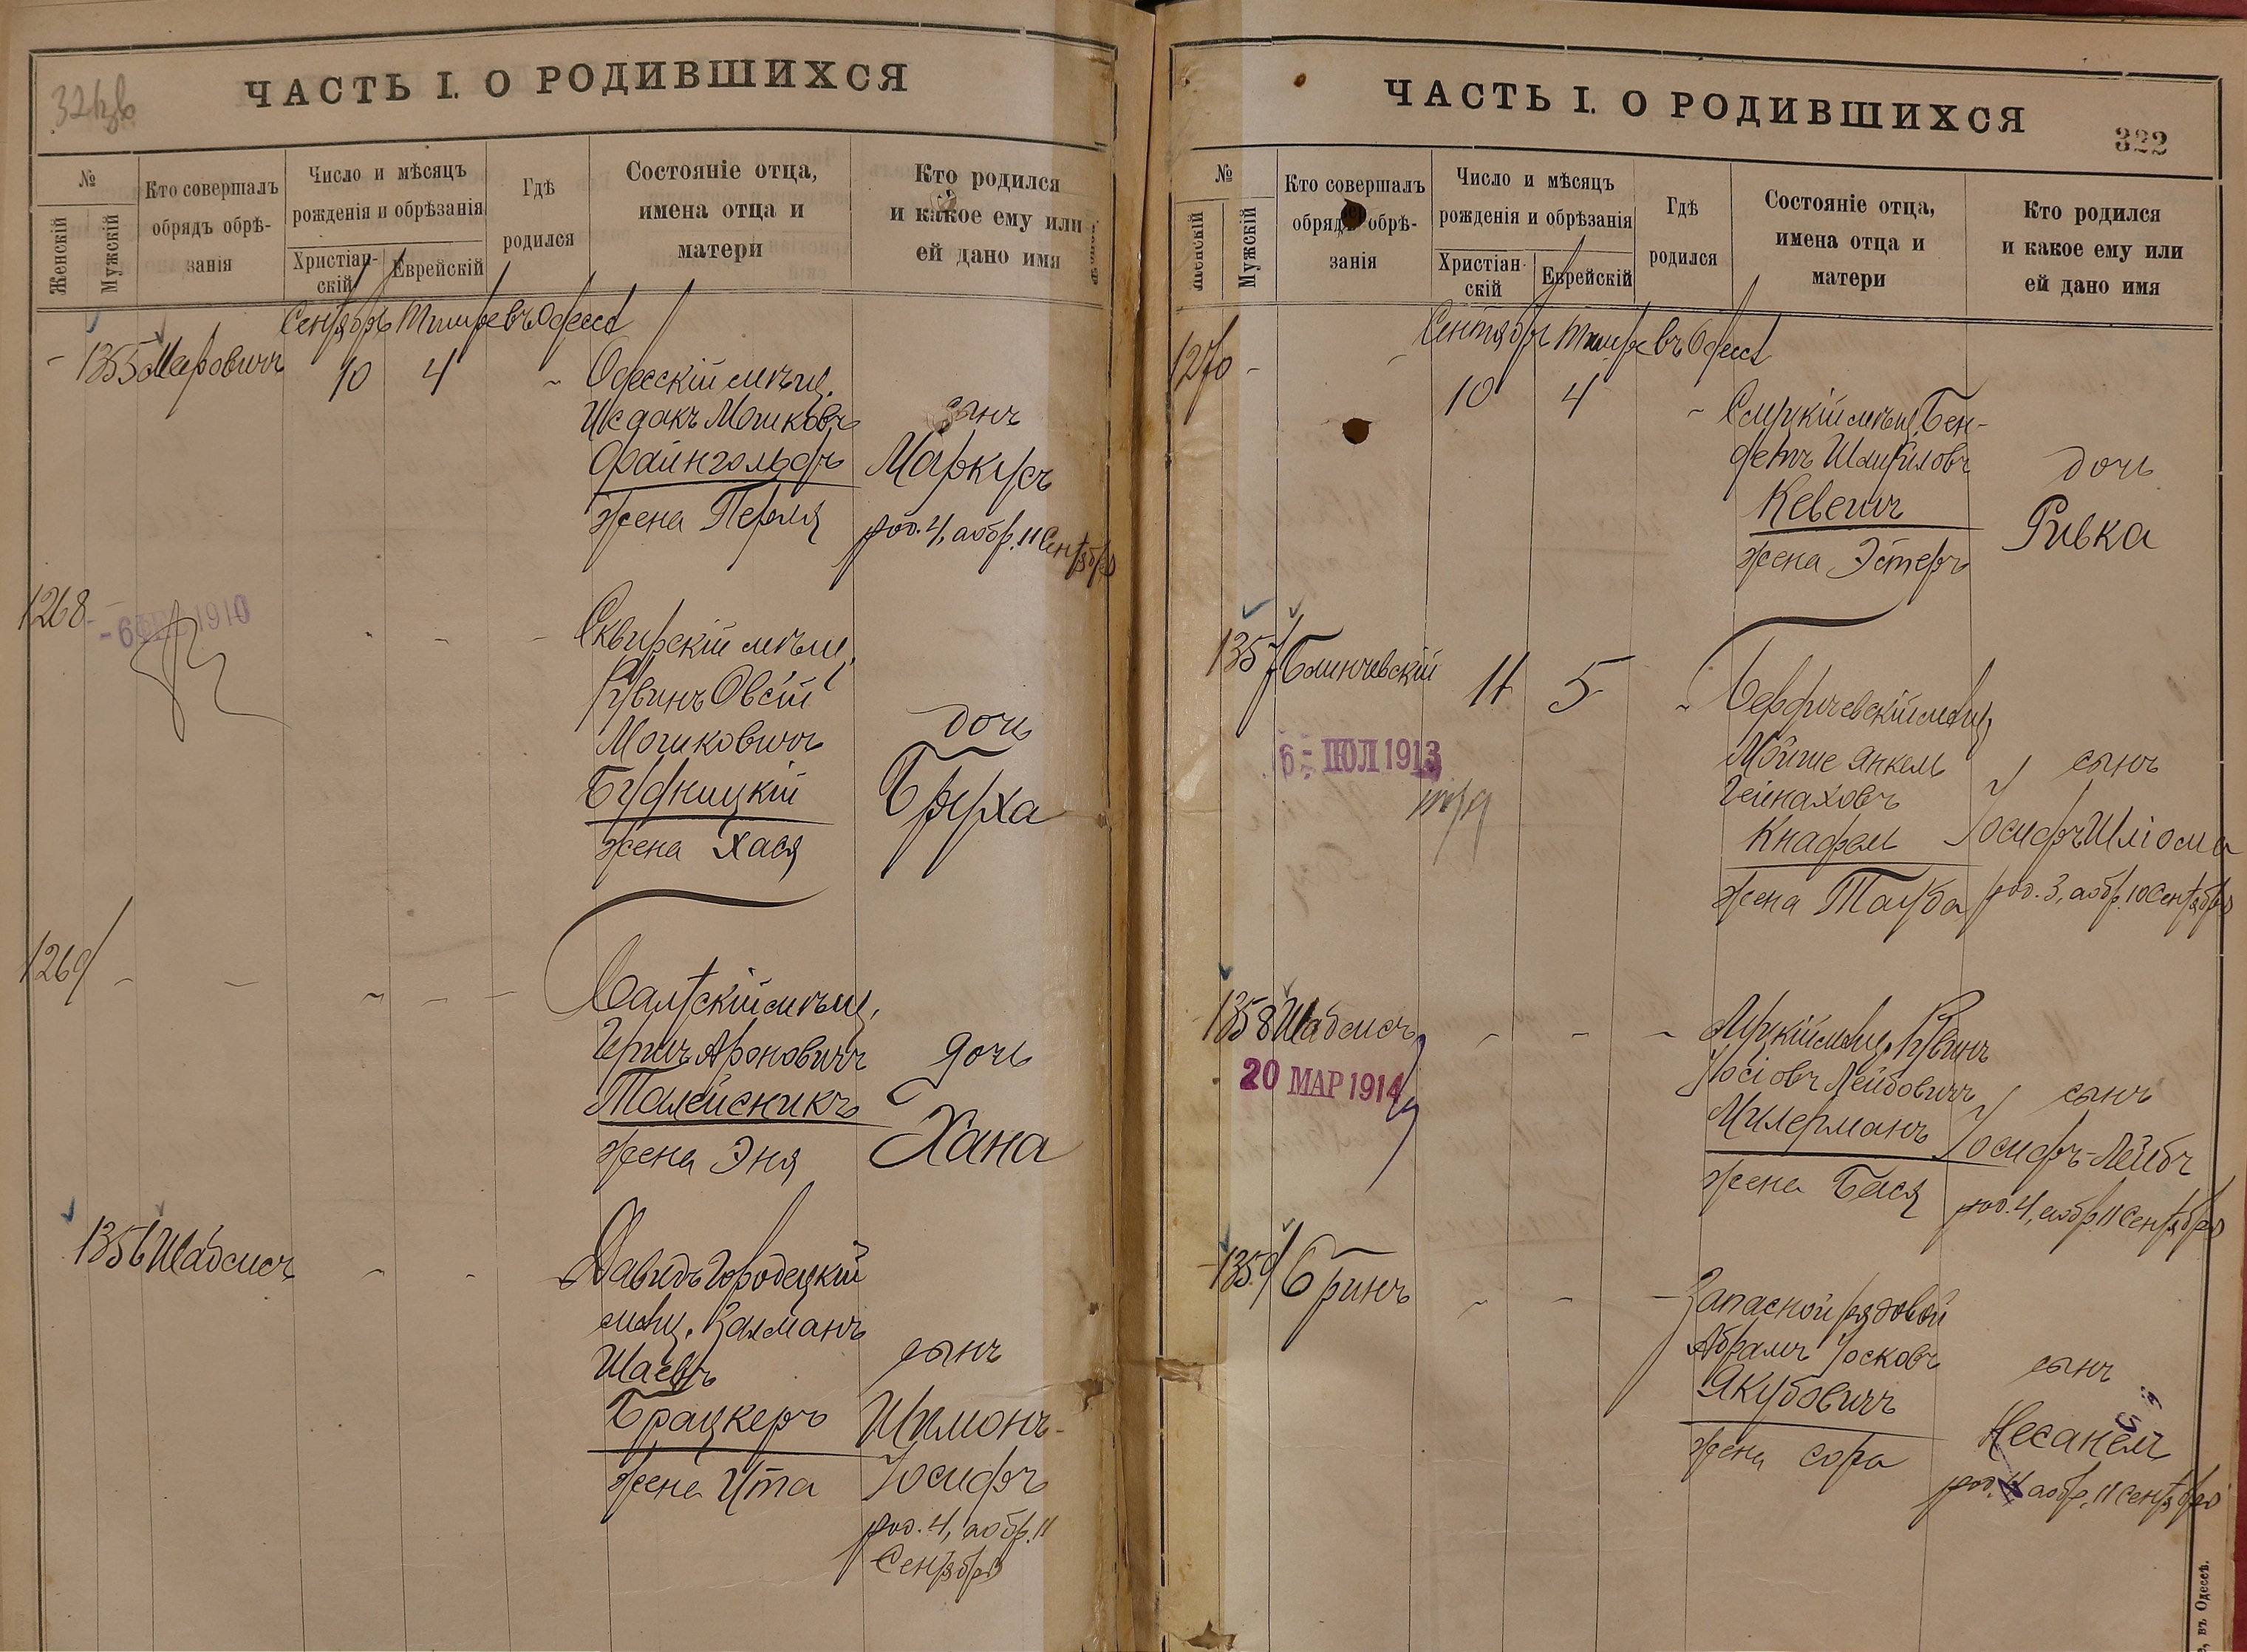 321об
ЧАСТЬ I. О РОДИВШИХСЯ
№
Женскій
Мужскій
Кто совершалъ
обрядъ обрѣ-
занія
Число и мѣсяцъ
рожденія и обрѣзанія
Христіан-
скій
Еврейскій
Гдѣ
родился
Состояніе отца,
имена отца и
матери
Кто родился
и какое ему или
ей дано имя
Сентябрь Тишре въ Одессѣ
- 1355 Маровичъ 10 4 - Одесскій мѣщ.
Исаакъ Мошковъ
Файнгольдъ
жена Перля
сынъ
Маркусъ
род. 4, а обр. 11 Сентября
1268 - - - - Сквирскій мѣщ.
- 6 1910
Рувинъ Овсій
Мошковичъ
Будницкій
жена Хася
дочь
Бруха
1269 - - - - - Балтскій мѣщ.
Гершъ Ароновичъ
Талейсникъ
жена Эня
дочь
Хана
1356 Шабсисъ - - - Давидъ Городецкій
мѣщ. Залманъ
Шаевъ
Брацкеръ
жена Ита
сынъ
Шимонъ-
Іосифъ
род. 4, а обр. 11
Сентября
ЧАСТЬ I. О РОДИВШИХСЯ
322
№
Женскій
Мужскій
Кто совершалъ
обрядъ обрѣ-
занія
Число и мѣсяцъ
рожденія и обрѣзанія
Христіан-
скій
Еврейскій
Гдѣ
родился
Состояніе отца,
имена отца и
матери
Кто родился
и какое ему или
ей дано имя
Сентябрь Тишре въ Одессѣ
1270 - - 10 4 - мѣщ. Бен-
Кевешъ
жена Эстеръ
дочь
Ривка
1357 Блинчевскій 11 5 - Бердичевскій мѣщ.
6 - ІЮЛ 1913
Мойше Янкель
Гейнаховъ
Кнафель
жена Тауба
сынъ
Іосифъ Шліома
род. 3, а обр. 10 Сентября
1358 Шабсисъ - - - Луцкій мѣщ. Рувинъ
20 МАР 1914
Іосіовъ Лейбовичъ
Милерманъ
жена Бася
сынъ
Іосифъ-Лейбъ
род. 4, а обр. 11 Сентября
- 1359 Бринъ - - - Запасной рядовой
Абрамъ Іосковъ
Якубовичъ
жена Сора
сынъ
Несанель
род. 4 а обр. 11 Сентября
, въ Одессѣ.